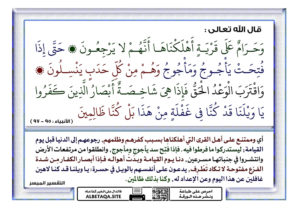 قال الله تعالى :
وَحَرَامٌ عَلَىٰ قَرْيَةٍ أَهْلَكْنَاهَا أَنَّهُمْ لَا يَرْجِعُونَ ۞ حَتَّىٰ إِذَا
فُتِحَتْ يَأْجُوجُ وَمَأْجُوجُ وَهُمْ مِنْ كُلِّ حَدَبٍ يَنْسِلُونَ ۞
وَاقْتَرَبَ الْوَعْدُ الْحَقُّ فَإِذَا هِيَ شَاخِصَةٌ أَبْصَارُ الَّذِينَ كَفَرُوا
يَا وَيْلَنَا قَدْ كُنَّا فِي غَفْلَةٍ مِنْ هَذَا بَلْ كُنَّا ظَالِمِينَ
(الأنبياء : ٩٥ - ٩٧)
أي وممتنع على أهل القرى التي أهلكناها بسبب كفرهم وظلمهم، رجوعهم إلى الدنيا قبل يوم
القيامة، ليستدركوا ما فرطوا فيه. فإذا فتح سد يأجوج ومأجوج، وانطلقوا من مرتفعات الأرض
وانتشروا في جنباتها مسرعين. دنا يوم القيامة وبدت أهواله فإذا أبصار الكفار من شدة
الفزع مفتوحة لا تكاد تطرف، يدعون على أنفسهم بالويل في حسرة: يا ويلنا قد كنا لاهين
غافلين عن هذا اليوم وعن الإعداد له، وكنا بذلك ظالمين.
التفسير الميسر
ALBETAQA.SITE